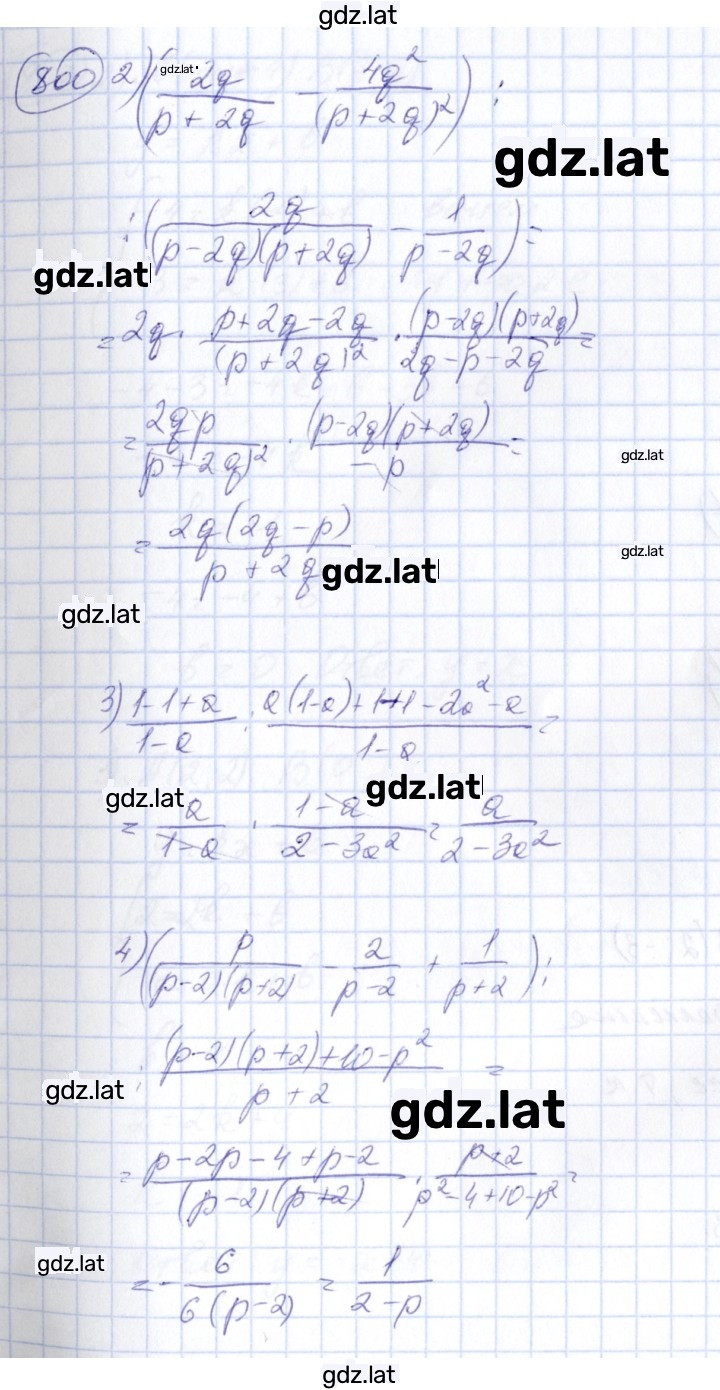 gdz.lat
800 2) (2q/(p+2q) - 4q²/(p+2q)²) :
gdz.lat
gdz.lat
: (2q/((p-2q)(p+2q)) - 1/(p-2q)) =
gdz.lat
= 2q · (p+2q-2q)/(p+2q)² · (p-2q)(p+2q)/(2q-p-2q) =
= 2qp/(p+2q)² · (p-2q)(p+2q)/(-p) =
gdz.lat
= 2q(2q-p)/(p+2q)
gdz.lat
gdz.lat
gdz.lat
3) (1-1+a)/(1-a) : (a(1-a)+1+1-2a²-a)/(1-a) =
gdz.lat
gdz.lat
= a/(1-a) · (1-a)/(2-3a²) = a/(2-3a²)
4) (p/((p-2)(p+2)) - 2/(p-2) + 1/(p+2)) :
: ((p-2)(p+2)+10-p²)/(p+2) =
gdz.lat
gdz.lat
= (p-2p-4+p-2)/((p-2)(p+2)) · (p+2)/(p²-4+10-p²) =
gdz.lat
= - 6/(6(p-2)) = 1/(2-p)
gdz.lat